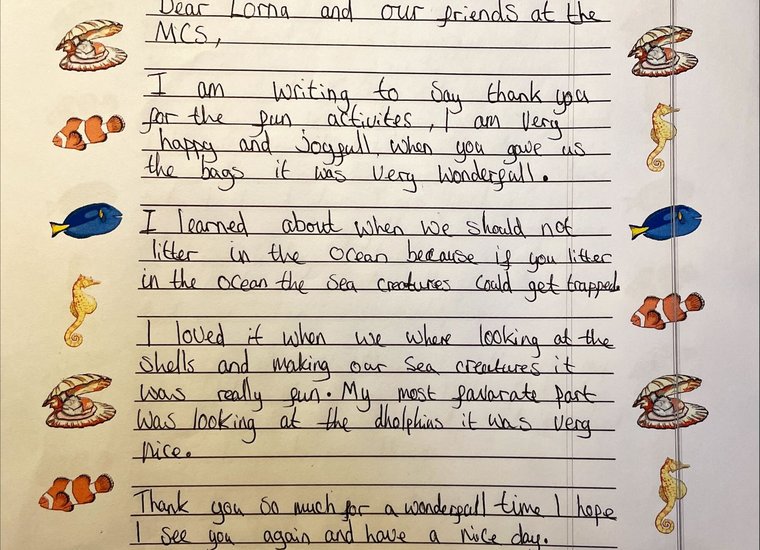 Dear Lorna and our friends at the
MCS,
I am writing to say thank you
for the fun activites, I am very
happy and joyfull, when you gave us
the bags it was very wonderfull.
I learned about when we should not
litter in the ocean because if you litter
in the ocean the sea creatures could get trapped.
I loved it when we where looking at the
shells and making our sea creatures it
was really fun. My most favarate part
was looking at the dholphins it was very
nice.
Thank you so much for a wonderfull time I hope
I see you again and have a nice day.